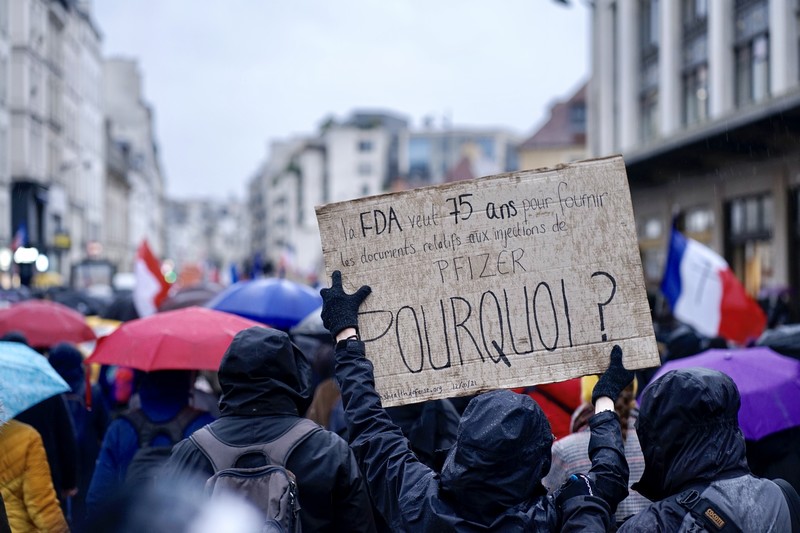 la FDA veut 75 ans pour fournir
les documents relatifs aux injections de
PFIZER
POURQUOI ?